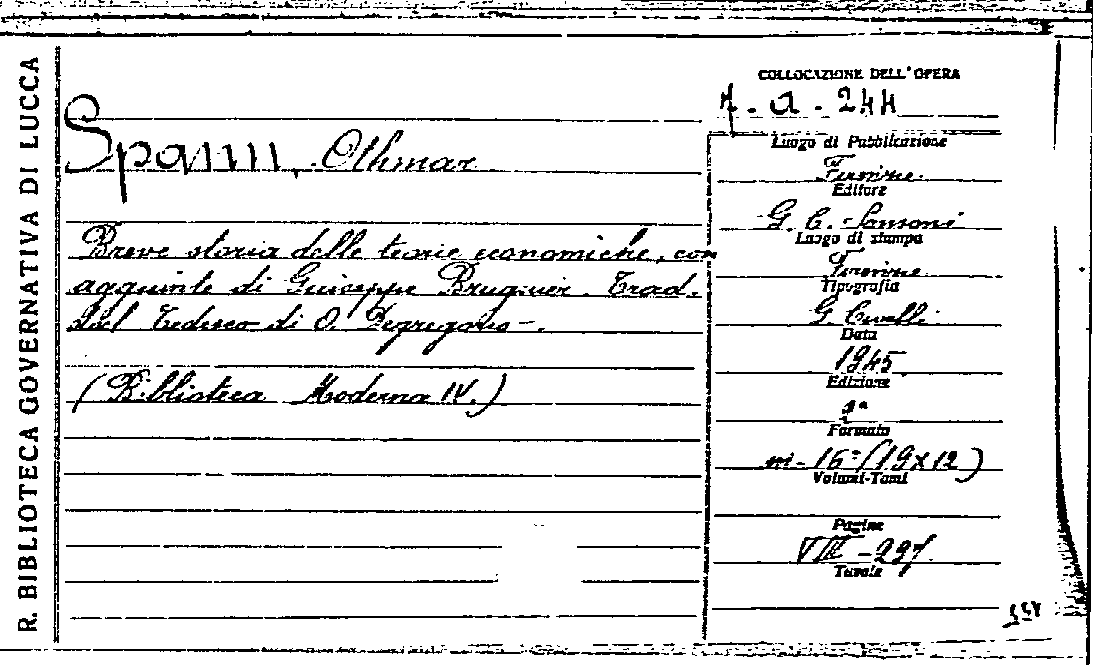 R. BIBLIOTECA GOVERNATIVA DI LUCCA
Spann, Othmar
Breve storia delle teorie economiche, con
aggiunte di Giuseppe Bruguier. Trad.
dal Tedesco di O. Degregorio-.
(Biblioteca Moderna IV.)
COLLOCAZIONE DELL'OPERA
7 - a - 244
Luogo di Pubblicazione
Firenze
Editore
G. C. Sansoni
Luogo di stampa
Firenze
Tipografia
G. Civelli
Data
1945
Edizione
Formato
in-16°(19x12)
Volumi-Tomi
Pagine
VIII-297
Tavole